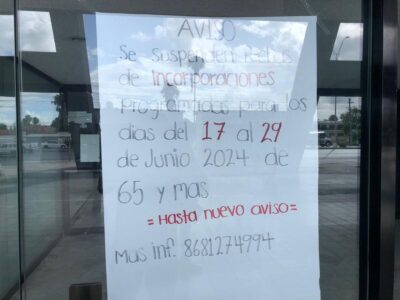 AVISO
Se suspenden fechas
de incorporaciones
programadas para los
dias del 17 al 29
de Junio 2024 de
65 y mas
= Hasta nuevo aviso =
Mas inf. 8681274994